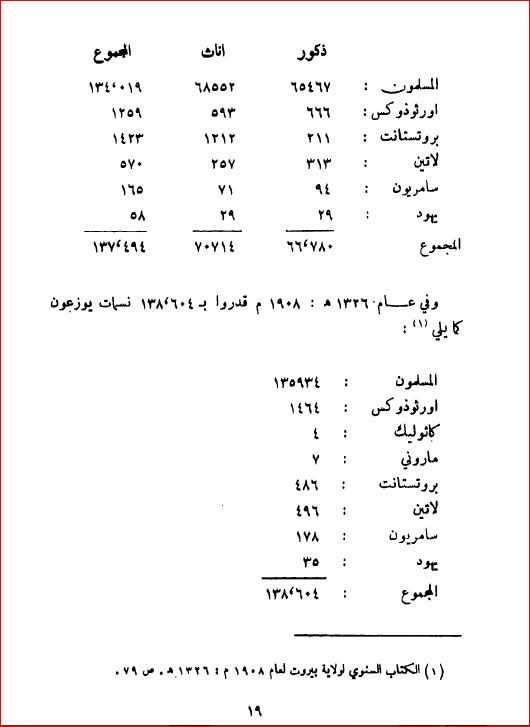 ذكور اناث المجموع
المسلمون : ٦٥٤٦٧ ٦٨٥٥٢ ١٣٤٬٠١٩
اورثوذوكس : ٦٦٦ ٥٩٣ ١٢٥٩
بروتستانت : ٢١١ ١٢١٢ ١٤٢٣
لاتين : ٣١٣ ٢٥٧ ٥٧٠
سامريون : ٩٤ ٧١ ١٦٥
يهود : ٢٩ ٢٩ ٥٨
المجموع ٦٦٬٧٨٠ ٧٠٧١٤ ١٣٧٬٤٩٤
وفي عـــام ١٣٢٦ هـ : ١٩٠٨ م قدروا بـ ١٣٨٬٦٠٤ نسمات يوزعون
كما يلي (١) :
المسلمون : ١٣٥٩٣٤
اورثوذوكس : ١٤٦٤
كاثوليك : ٤
ماروني : ٧
بروتستانت : ٤٨٦
لاتين : ٤٩٦
سامريون : ١٧٨
يهود : ٣٥
المجموع : ١٣٨٬٦٠٤
(١) الكتاب السنوي لولاية بيروت لعام ١٩٠٨ م : ١٣٢٦ هـ . ص ٧٩ .
١٩